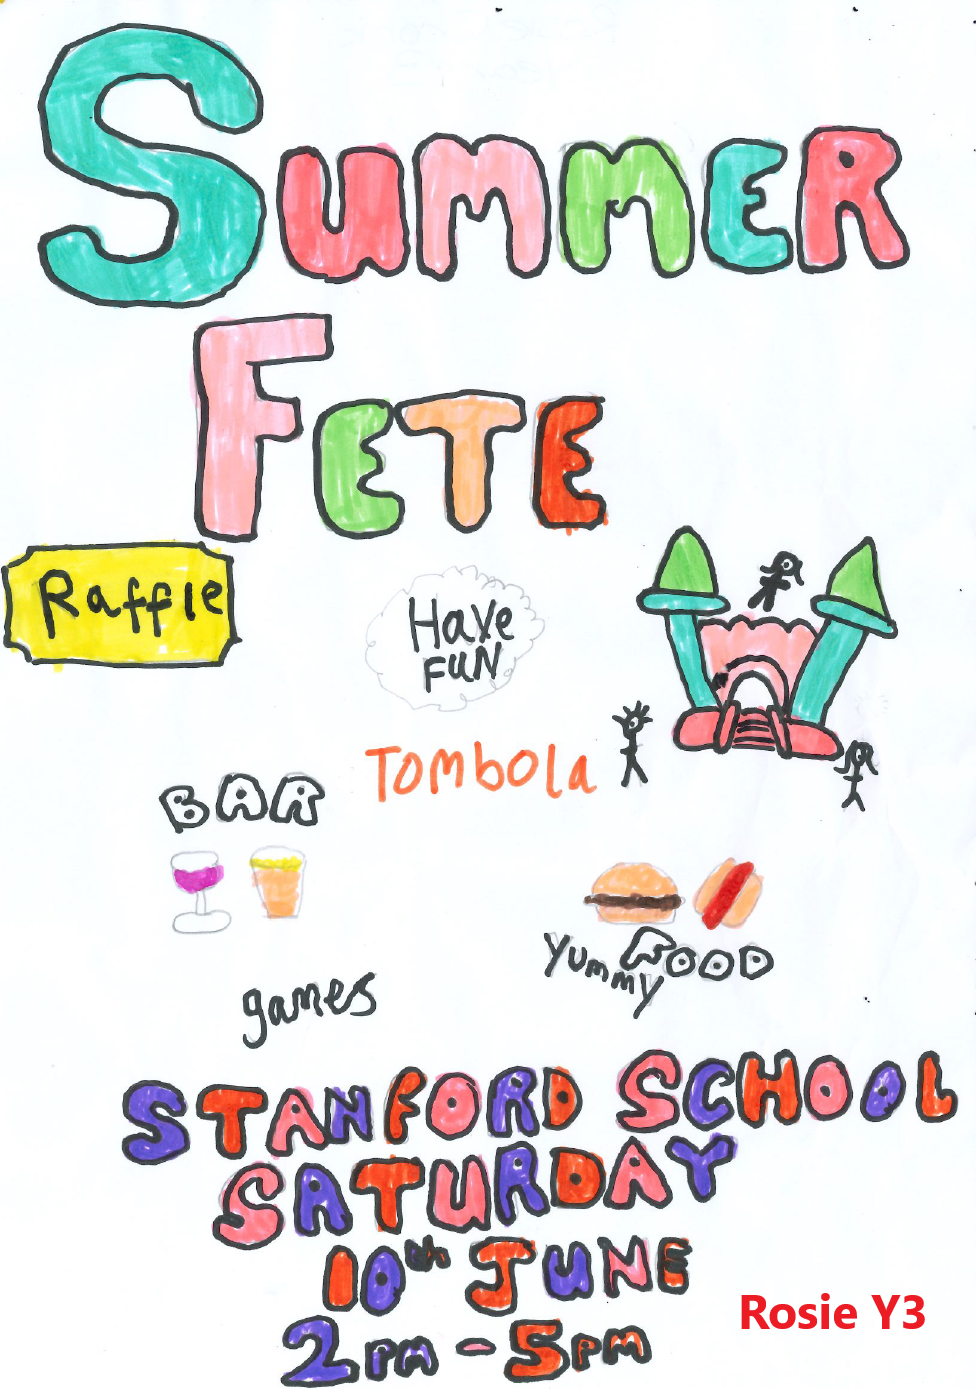 SUMMER
FETE
Raffle
Have
FUN
TOMBOLA
BAR
Yummy FOOD
games
STANFORD SCHOOL
SATURDAY
10th JUNE
2pm - 5pm
Rosie Y3